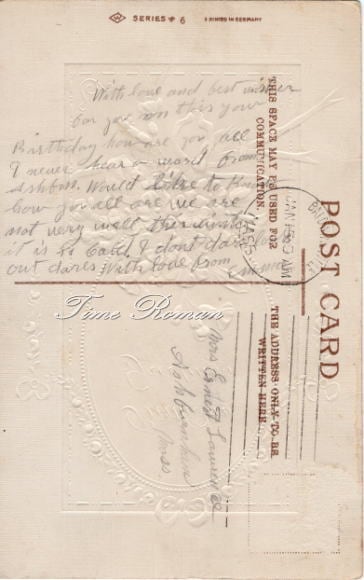 SERIES # 6
PRINTED IN GERMANY
With love and best wishes
for you on this your
Birthday how are you all
I never hear a word from
Ashbm. Would like to know
how you all are we are
not very well this winter
it is so Cold I dont dare
out dares With love from
Emma
THIS SPACE MAY BE USED FOR
COMMUNICATION
POST CARD
THE ADDRESS ONLY TO BE
WRITTEN HERE
JAN 15
MASS
Mrs Ernest Lawrence
Ashburnham
Mass.
Time Roman